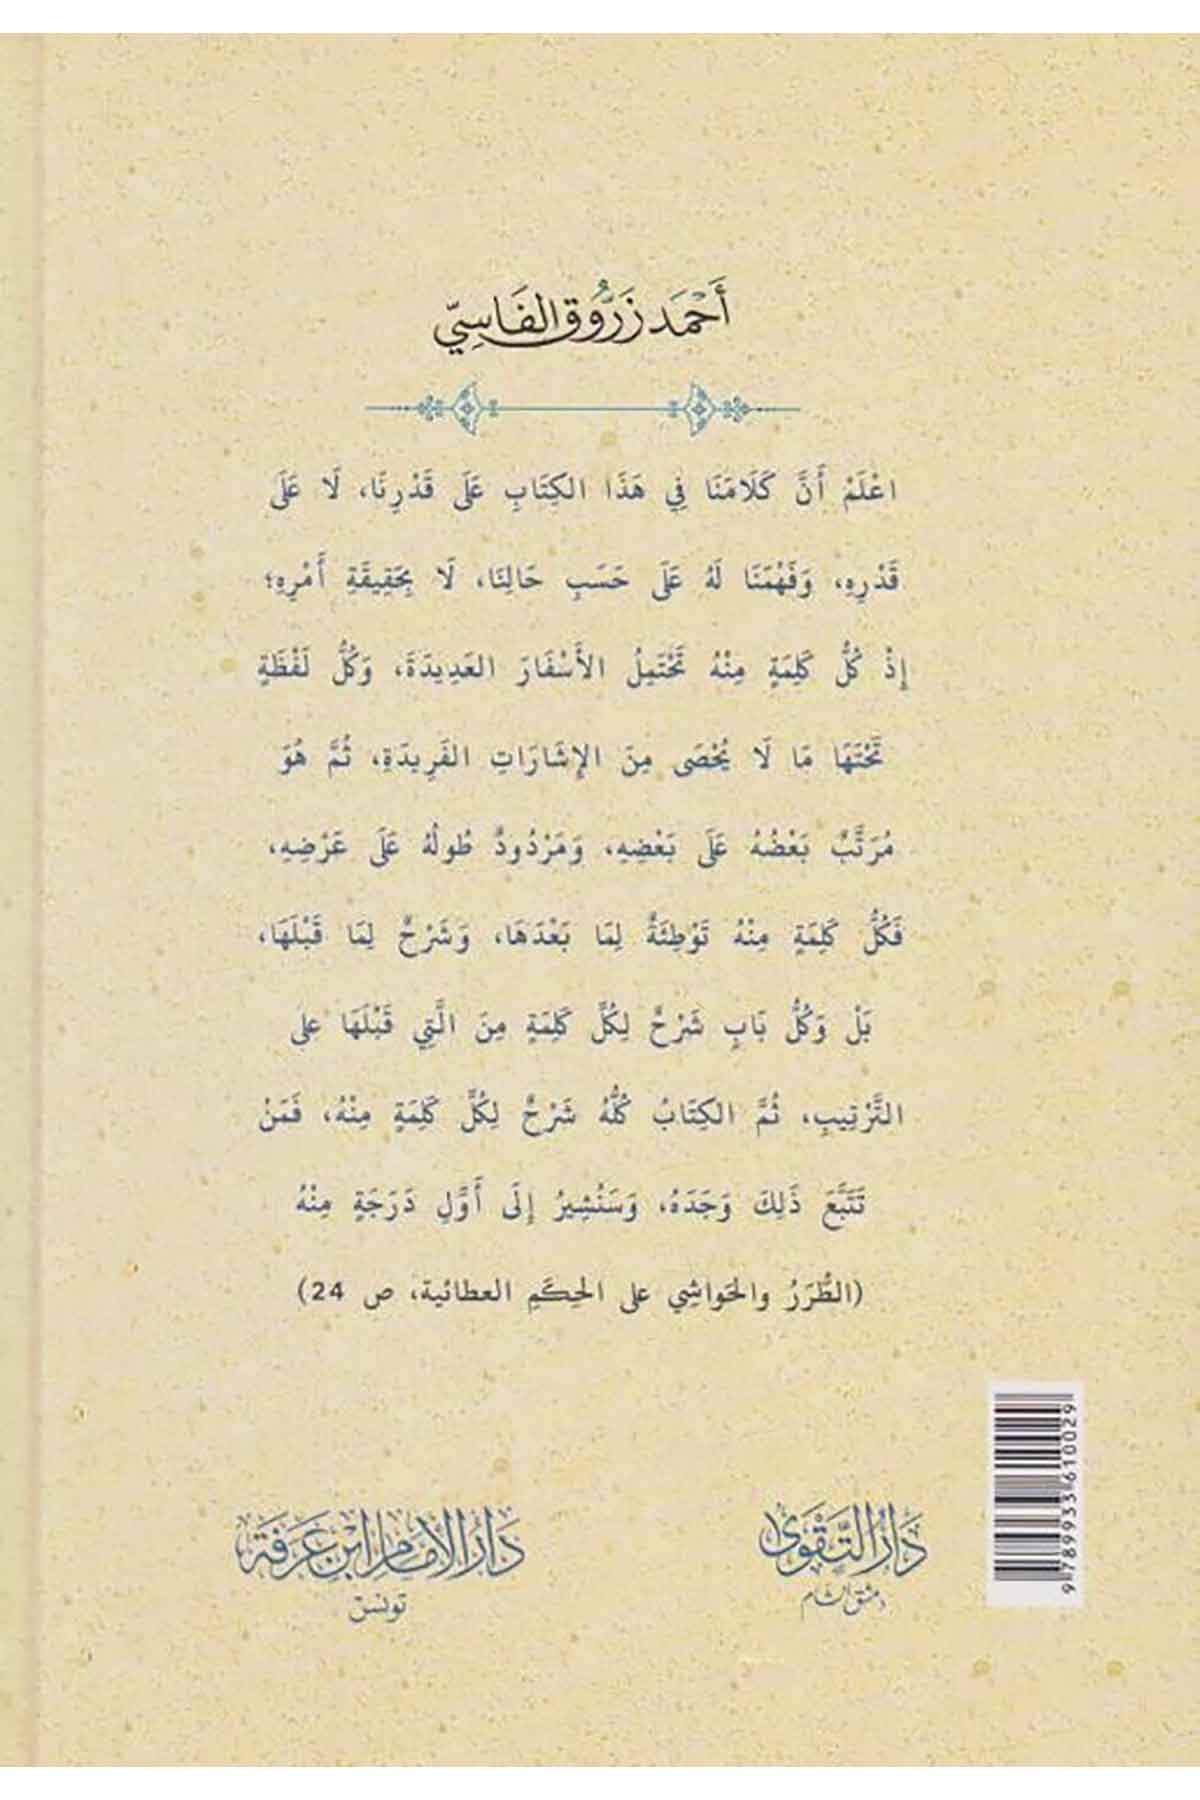 أَحْمَد زَرُّوق الفَاسِيّ
اعْلَمْ أَنَّ كَلَامَنَا فِي هَذَا الكِتَابِ عَلَى قَدْرِنَا، لَا عَلَى
قَدْرِهِ، وَفَهْمَنَا لَهُ عَلَى حَسَبِ حَالِنَا، لَا بِحَقِيقَةِ أَمْرِهِ؛
إِذْ كُلُّ كَلِمَةٍ مِنْهُ تَحْتَمِلُ الأَسْفَارَ العَدِيدَةَ، وَكُلُّ لَفْظَةٍ
تَحْتَهَا مَا لَا يُحْصَى مِنَ الإِشَارَاتِ الفَرِيدَةِ، ثُمَّ هُوَ
مُرَتَّبٌ بَعْضُهُ عَلَى بَعْضِهِ، وَمَرْدُودٌ طُولُهُ عَلَى عَرْضِهِ،
فَكُلُّ كَلِمَةٍ مِنْهُ تَوْطِئَةٌ لِمَا بَعْدَهَا، وَشَرْحٌ لِمَا قَبْلَهَا،
بَلْ وَكُلُّ بَابٍ شَرْحٌ لِكُلِّ كَلِمَةٍ مِنَ الَّتِي قَبْلَهَا على
التَّرْتِيبِ، ثُمَّ الكِتَابُ كُلُّهُ شَرْحٌ لِكُلِّ كَلِمَةٍ مِنْهُ، فَمَنْ
تَتَبَّعَ ذَلِكَ وَجَدَهُ، وَسَنُشِيرُ إِلَى أَوَّلِ دَرَجَةٍ مِنْهُ
(الطُّرَرُ والحَواشِي على الحِكَمِ العطائية، ص 24)
دَارُ التَّقْوَى
دمشق الشام
دَارُ الإِمَام ابْن عَرَفَة
تونس
9 789933 610029